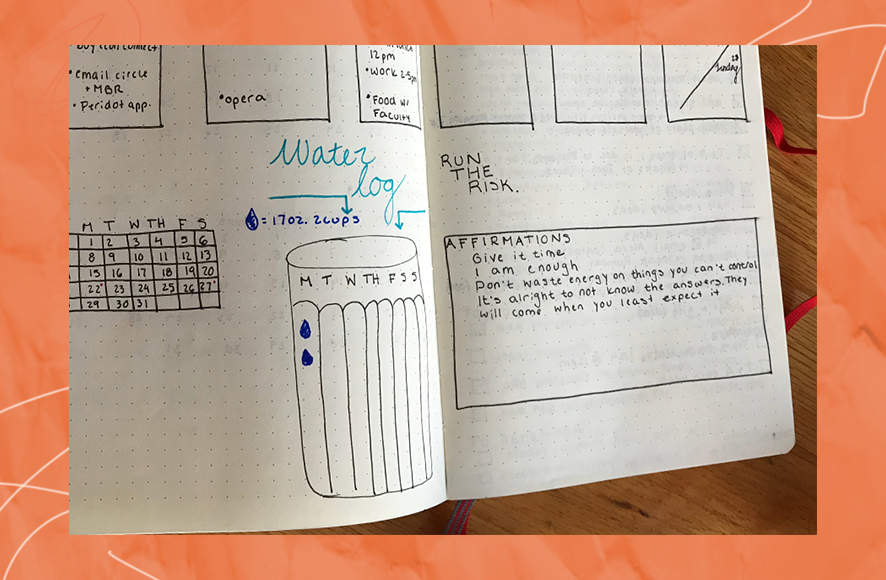 • Buy icon connect
• email circle
+ MBR
• Peridot app.
• opera
12pm
• work 2-5pm
• Food w/
Faculty
Water
log
= 17oz. 2cups
M T W TH F S
1 2 3 4 5 6
8 9 10 11 12 13
15 16 17 18 19 20
22 23 24 25 26 27
29 30 31
M T W TH F S S
28
Sunday
RUN
THE
RISK.
AFFIRMATIONS
Give it time
I am enough
Don't waste energy on things you can't control
It's alright to not know the answers. They
will come when you least expect it